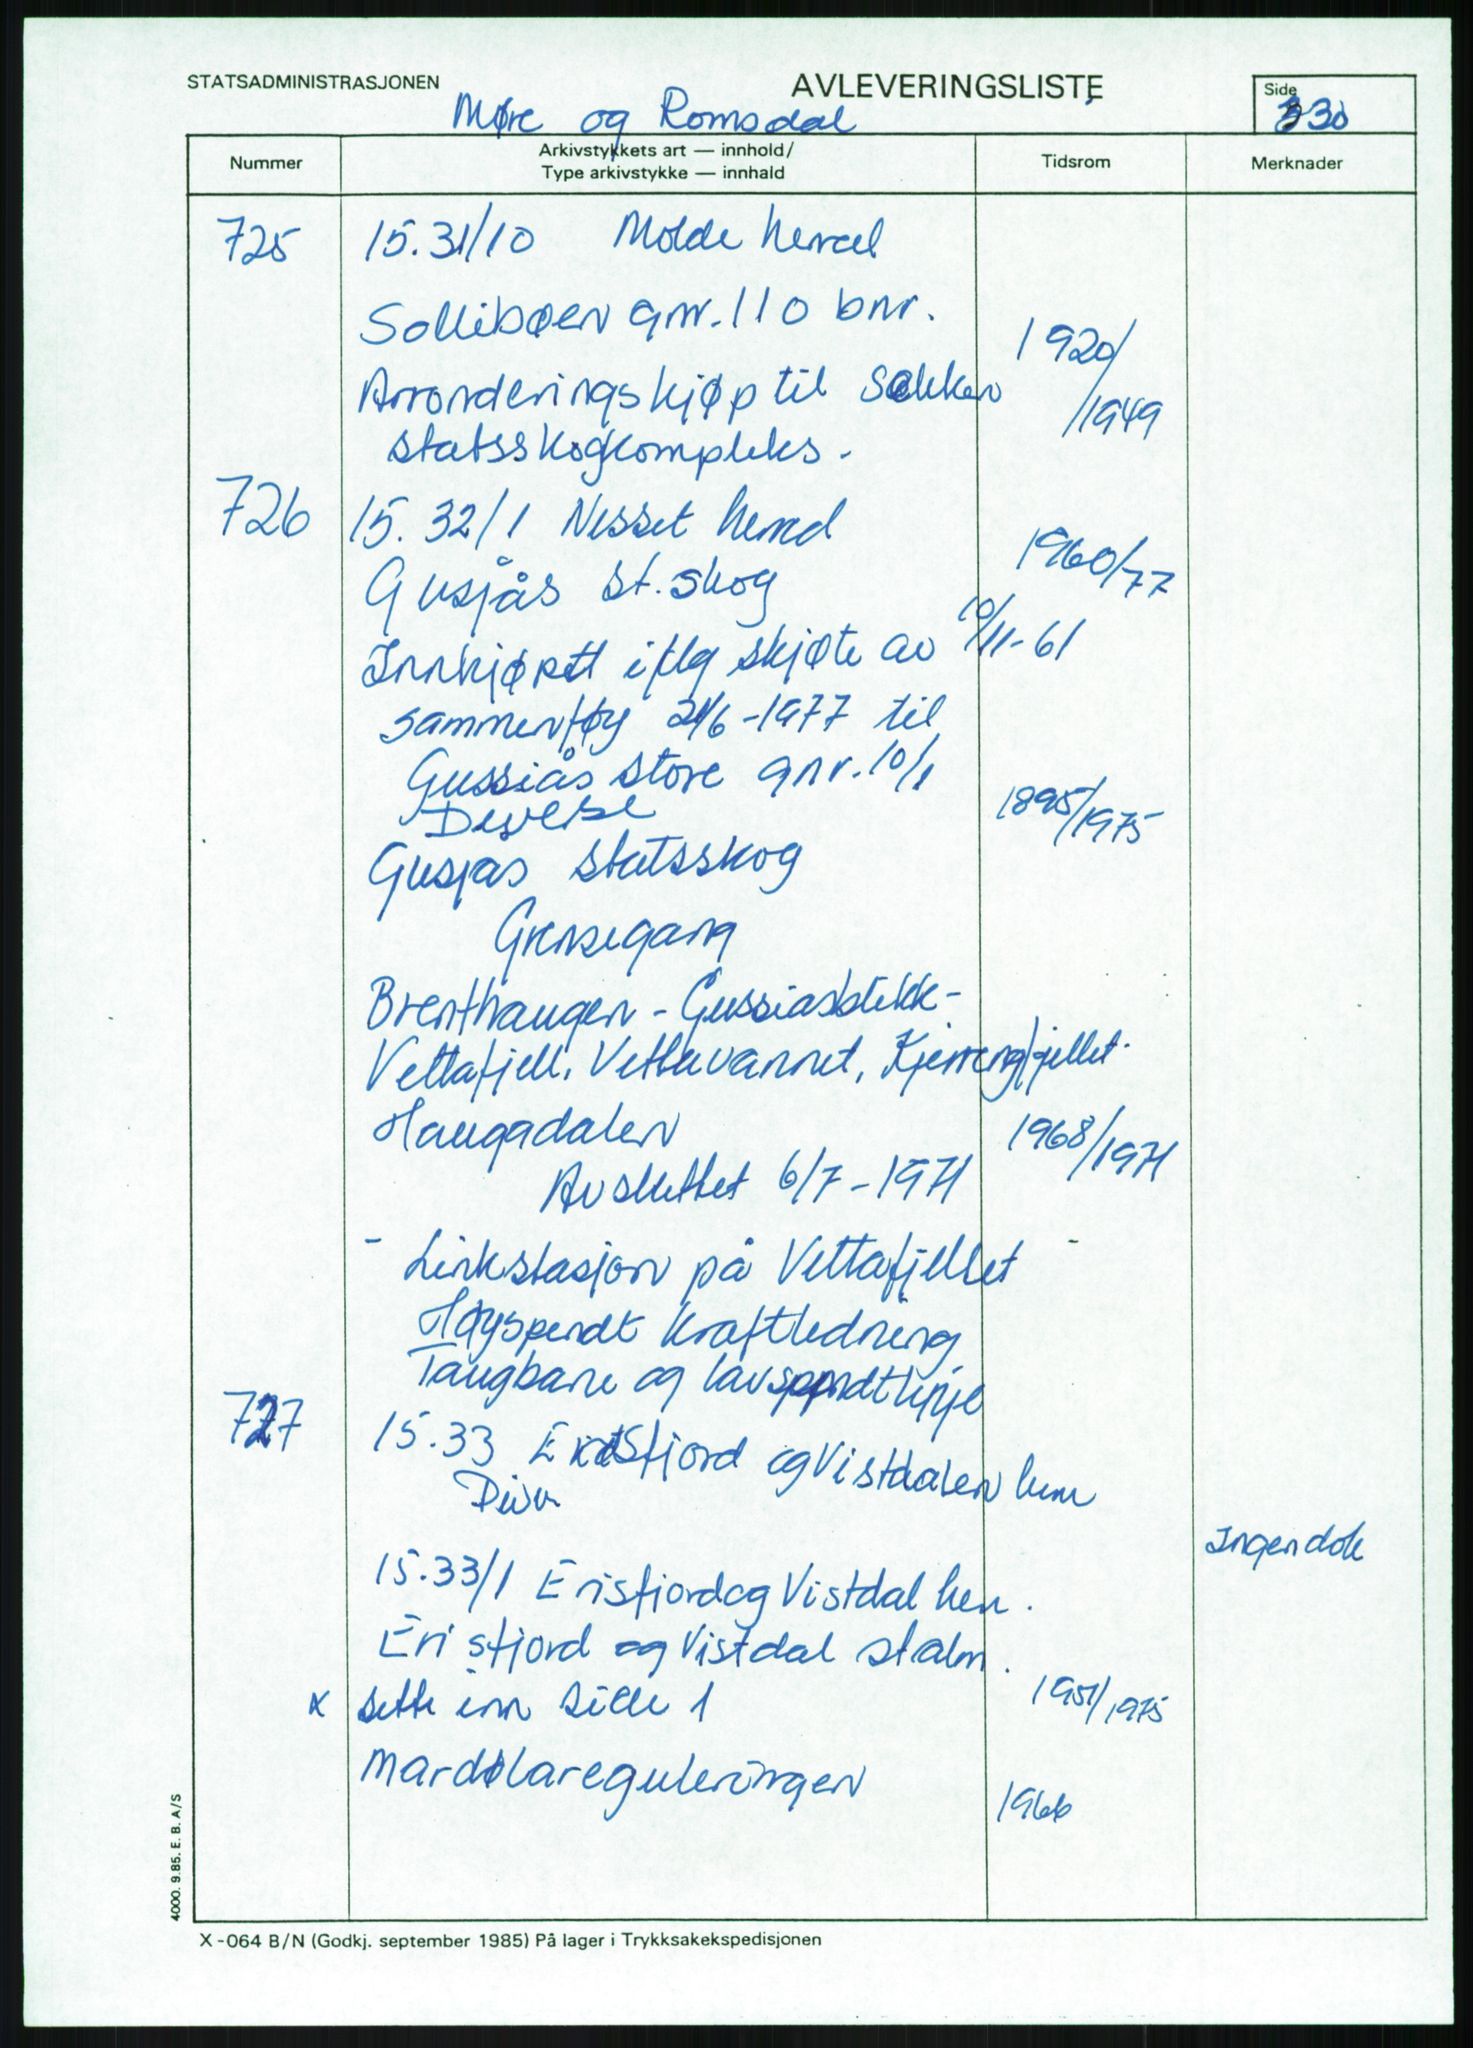 STATSADMINISTRASJONEN
AVLEVERINGSLISTE
Side
330
Møre og Romsdal
Nummer
Arkivstykkets art — innhold/
Type arkivstykke — innhald
Tidsrom
Merknader
725 15.31/10 Molde herred
Sollibøen gnr. 110 bnr.
1920/
/1949
Arronderingskjøp til Sekken
statsskogkompleks.
726 15.32/1 Nesset herred
Gusjås st. skog 1960/77
Innkjøpett iflg skjøte av 10/11-61
sammenføy 21/6-1977 til
Gussiås store gnr. 10/1
Diverse 1895/1975
Gusjås statsskog
Grensegang
Brenthaugen - Gussiasblekk-
Vettafjell, Vetlevannet, Kjerrengfjellet.
Haugadalen 1968/1971
Avsluttet 6/7-1971
- Linkstasjon på Vettafjellet -
Høyspendt kraftledning
Taugbane og lavspendtlinje
727 15.33 Eristfjord og Vistdalen herr
Div
Ingen dok
15.33/1 Erisfjord og Vistdal herr.
Erisfjord og Vistdal stalm.
x sette inn side 1 1951/1975
Mardølareguleringen
1966
4000. 9.85. E. B. A/S
X-064 B/N (Godkj. september 1985) På lager i Trykksakekspedisjonen